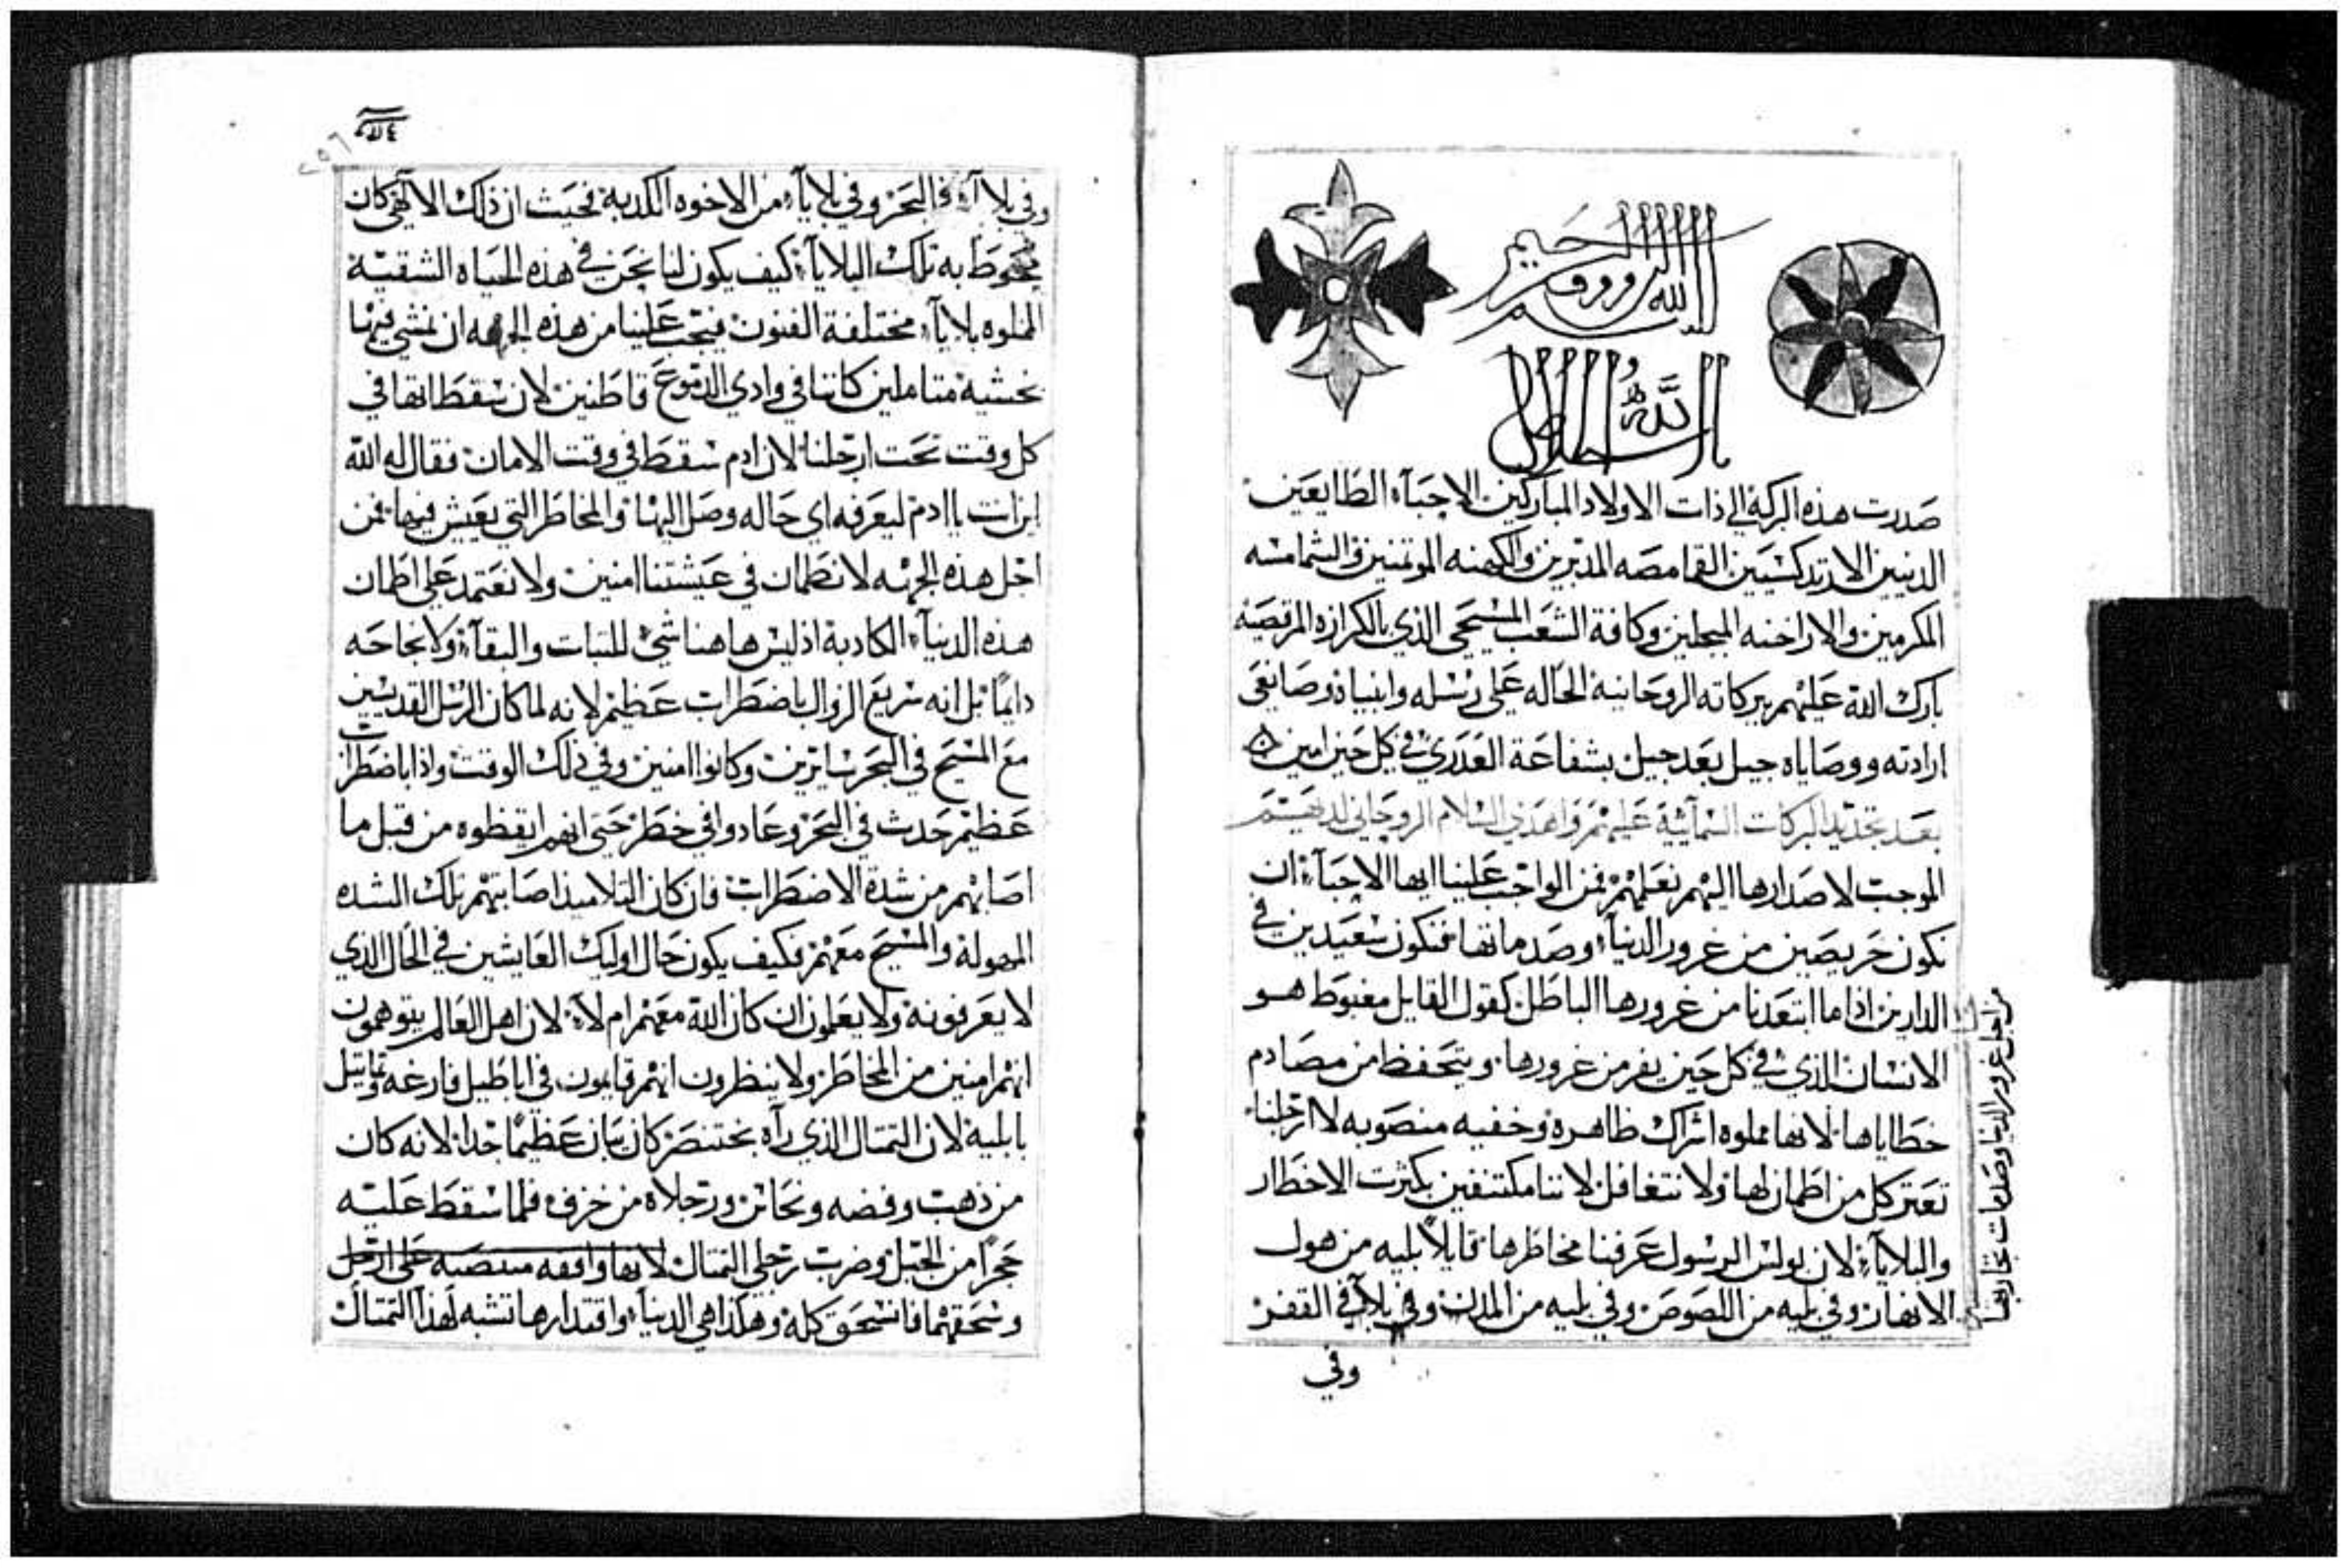 بسم الله الرووف الرحيم
صدرت هذه البركة الي ذات الاولاد المباركين الاحبآء الطايعين
الدينين الارتدكسيين القامصه المدبرين والكهنه الموتمنين والشمامسه
المكرمين والاراخنه المبجلين وكافة الشعب المسيحي الذي بالكرازه المرقصيه
بارك الله عليهم ببركاته الروحانية الحاله علي رسله وانبياه وصانعي
ارادته ووصاياه جيل بعد جيل بشفاعة العدري في كل حين امين
بعد تجديد البركات السمآئية عليهم واهدي السلام الروحاني لديهم
الموجب لاصدارها اليهم نعلمهم فمن الواجب علينا ايها الاحبآء ان
نكون حريصين من غرور الدنيآء وصدماتها فنكون سعيدين في
الدارين اذا ما ابتعدنا من غرورها الباطل كقول القايل مغبوط هو
الانسان الذي في كل حين يفر من غرورها ويتحفظ من مصادم
خطاياها لانها مملوه اشراك ظاهره وخفيه منصوبه لا ارجلنا
تعتر كل من اطمان لها ولا نتغافل لاننا مكتنفين بكثرت الاخطار
والبلايآء لان بولس الرسول عرفنا مخاطرها قايلاً بليه من هول
الانهار وفي بليه من اللصوص وفي بليه من المدن وفي بلآ في القفر
وفي
من اجل غرور الدنيا وصدمات تجاربها
٢٥٦
وفي بلا آء في البحر وفي بلايآء من الاخوه الكدبة فحيث ان ذلك الالآهي كان
محوط به تلك البلايآء كيف يكون لنا نحن في هذه الحياه الشقية
المملوه بلايآء مختلفة الفنون فيجب علينا من هذه الجهه ان نمشي فيها
بخشية متاملين كاننا في وادي الدموع قاطنين لان سقطاتها في
كل وقت تحت ارجلنا لان ادم سقط في وقت الامان فقال له الله
اين انت ياادم ليعرفه اي حاله وصل اليها والمخاطر التي يعيش فيها فمن
اجل هذه الجهه لا نطمان في عيشتنا امنين ولا نعتمد علي اطمان
هذه الدنيآء الكادبة اذ ليس هاهنا شئ للتبات والبقآء ولا نجاحه
دايماً بل انه سريع الزوال باضطراب عظيم لانه لما كان الرسل القديسين
مع المسيح في البحر سايرين وكانوا امنين وفي ذلك الوقت واذا باضطراب
عظيم حدث في البحر وعادوا في خطر حتي انهم ايقظوه من قبل ما
اصابهم من شدة الاضطراب فان كان التلاميذ اصابتهم تلك الشده
المهولة والمسيح معهم فكيف يكون حال اوليك العايشين في الحال الذي
لا يعرفونه ولا يعلمون ان كان الله معهم ام لآء لان اهل العالم يتوهمون
انهم امنين من المخاطر ولا ينظرون انهم قايمون في اباطيل فارغه وتماتيل
بابلية لان التمتال الذي رآه بختنصر كان بيان عظيماً جدا لانه كان
من ذهب وفضه ونحاس ورجلاه من خزف فلما سقط عليه
حجراً من الجبل وضرب رجلي التمتال لانها واقفه منتصبه علي ارجل
وسحقهما فانسحق كله وهكذا هي الدنيآء واقتدارها تشبه لهذا التمتال